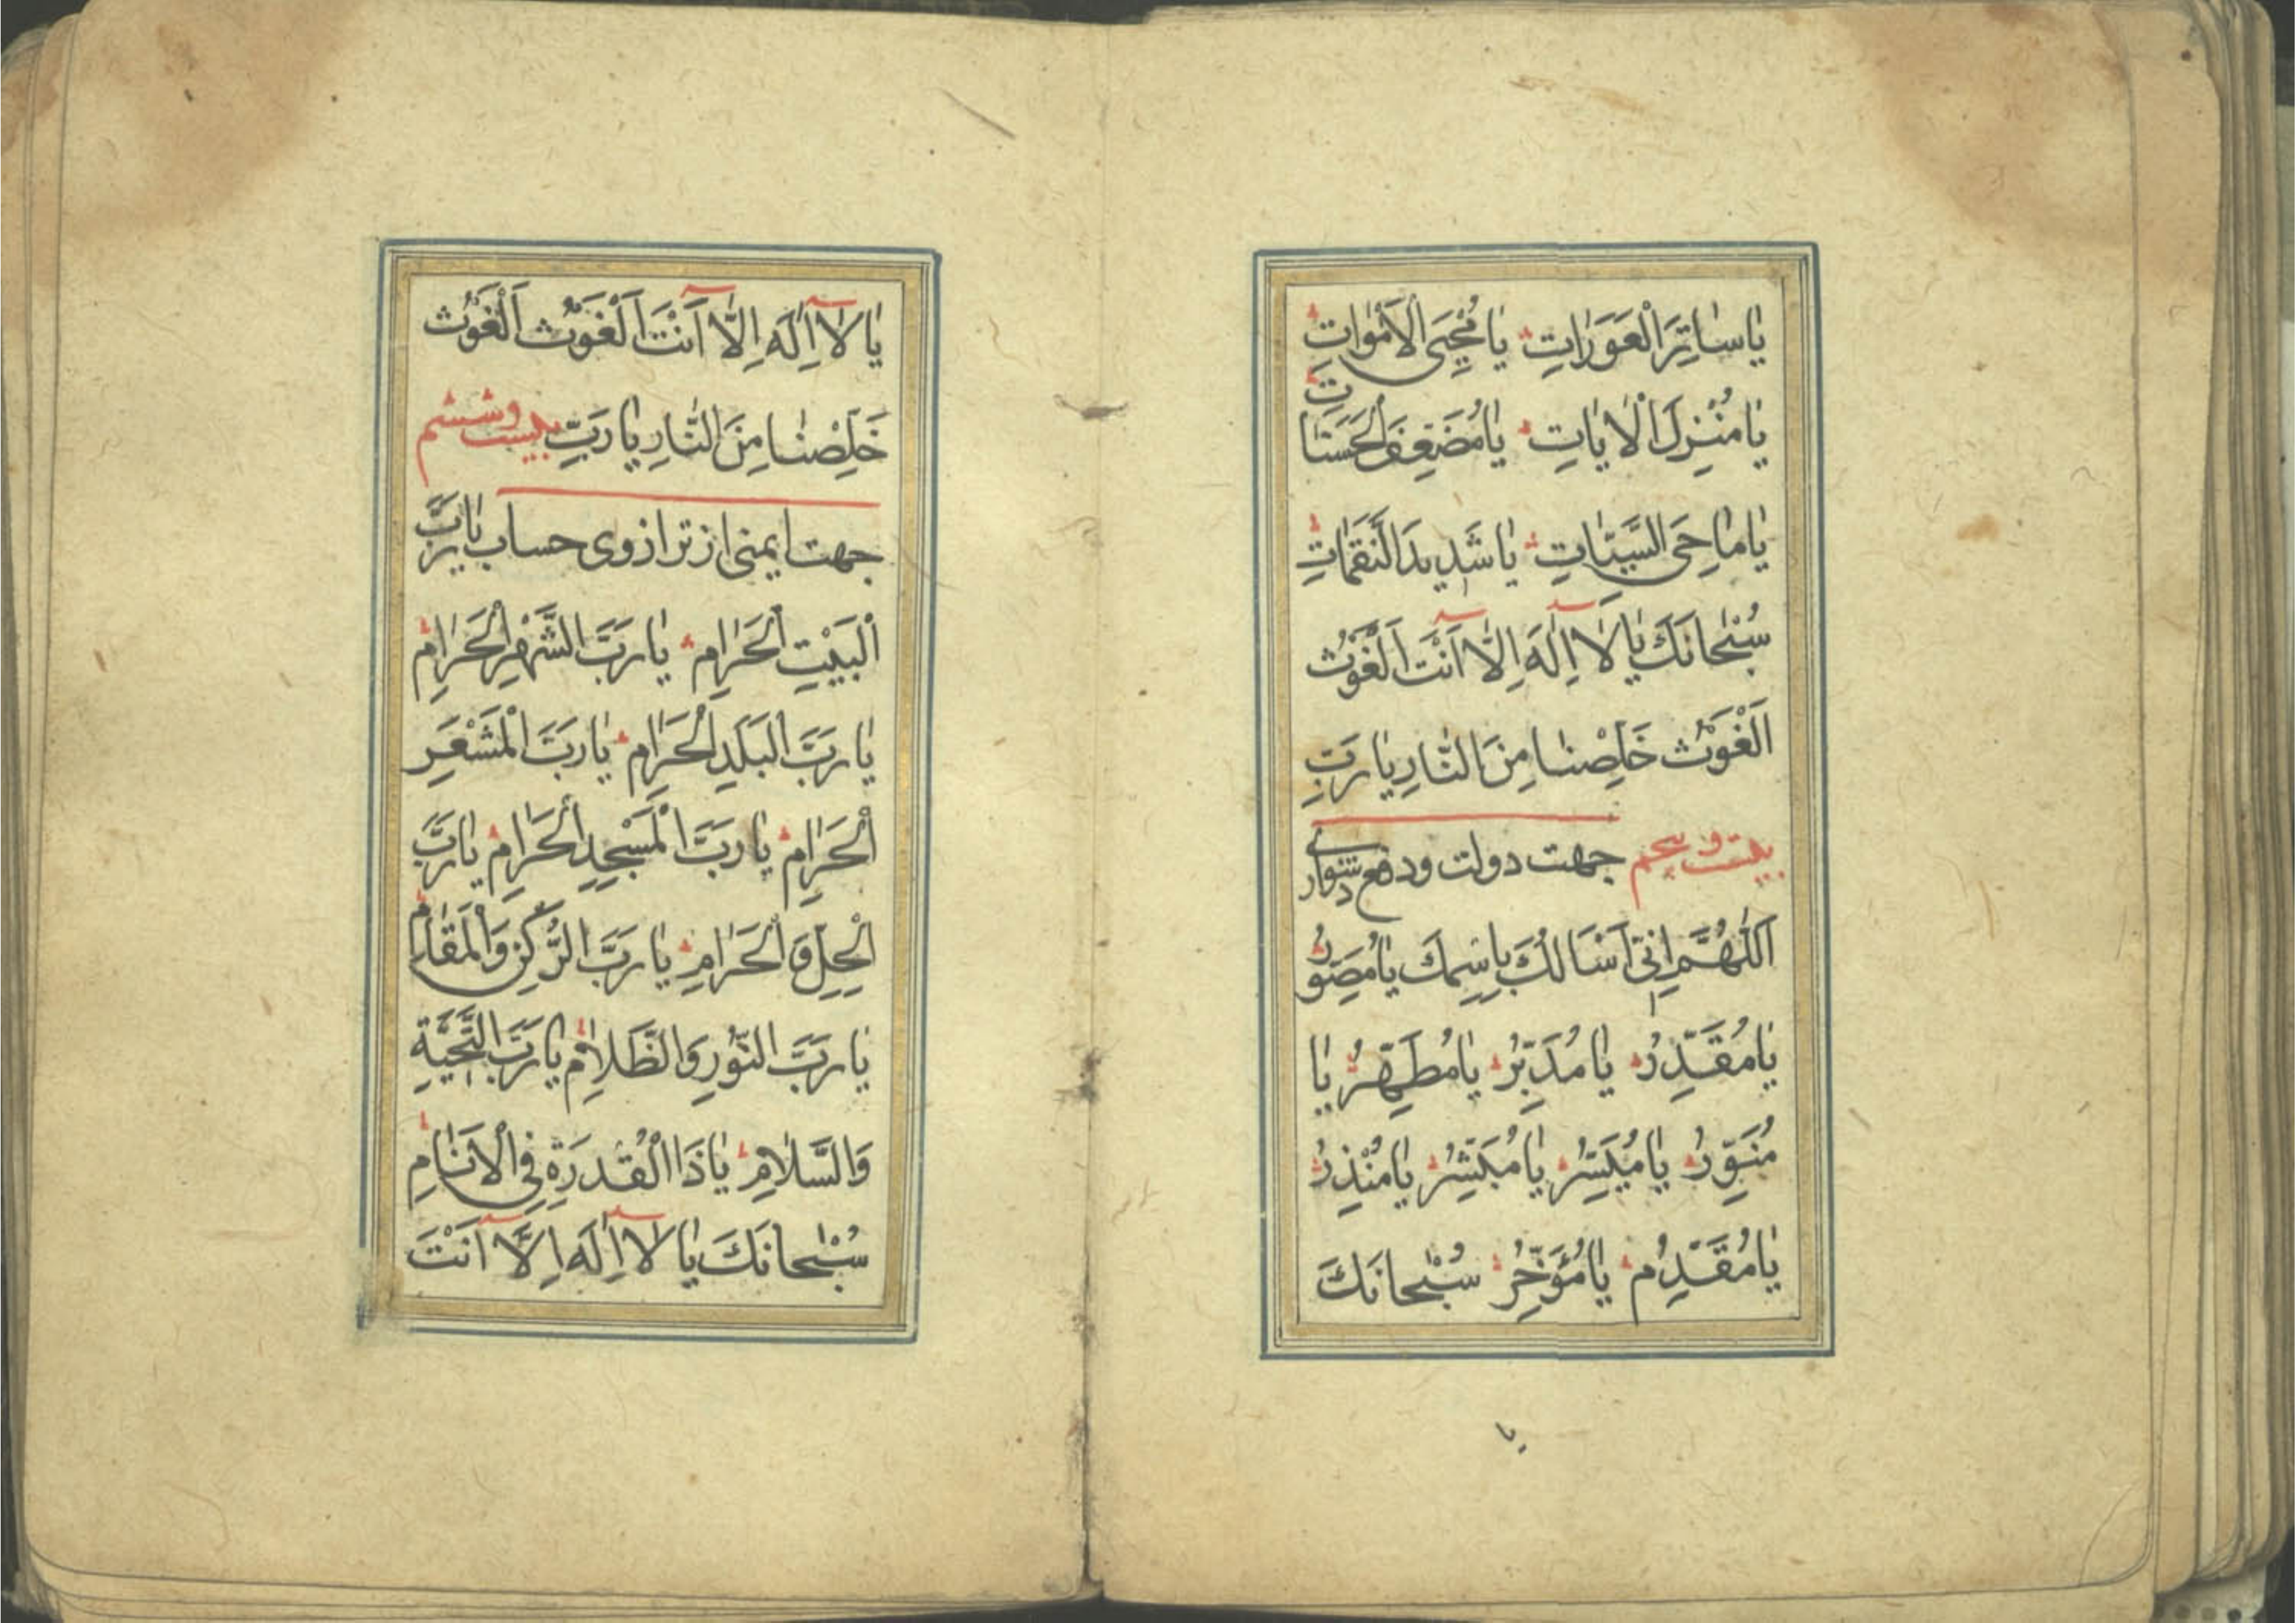 يا ساتِرَ الْعَوَراتِ يا مُحْيِىَ الْاَمْواتِ
يا مُنْزِلَ الْاياتِ يا مُضَعِّفَ الْحَسَناتِ
يا ماحِىَ السَّيِّئاتِ يا شَديدَ النَّقَماتِ
سُبْحانَكَ يا لا اِلهَ اِلَّا اَنْتَ اَلْغَوْثَ
اَلْغَوْثَ خَلِّصْنا مِنَ النَّارِ يا رَبِّ
بيست وپنجم جهت دولت ودفع دشواری
اَللّهُمَّ اِنّى اَسْاَلُكَ بِاسْمِكَ يا مُصَوِّرُ
يا مُقَدِّرُ يا مُدَبِّرُ يا مُطَهِّرُ يا
مُنَوِّرُ يا مُيَسِّرُ يا مُبَشِّرُ يا مُنْذِرُ
يا مُقَدِّمُ يا مُؤَخِّرُ سُبْحانَكَ
يا
يا لا اِلهَ اِلَّا اَنْتَ اَلْغَوْثَ اَلْغَوْثَ
خَلِّصْنا مِنَ النَّارِ يا رَبِّ بيست وششم
جهت ايمنى از ترازوى حساب يا رَبَّ
الْبَيْتِ الْحَرامِ يا رَبَّ الشَّهْرِ الْحَرامِ
يا رَبَّ الْبَلَدِ الْحَرامِ يا رَبَّ الْمَشْعَرِ
الْحَرامِ يا رَبَّ الْمَسْجِدِ الْحَرامِ يا رَبَّ
الْحِلِّ وَ الْحَرامِ يا رَبَّ الرُّكْنِ وَالْمَقامِ
يا رَبَّ النُّورِ وَالظَّلامِ يا رَبَّ التَّحِيَّةِ
وَالسَّلامِ يا ذَا الْقُدْرَةِ فِى الْاَنامِ
سُبْحانَكَ يا لا اِلهَ اِلَّا اَنْتَ